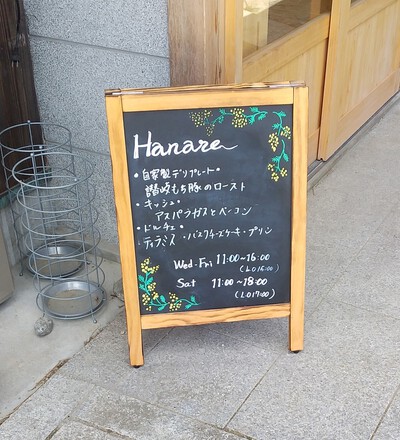 Hanare
・自家製デリプレート・
讃岐もち豚のロースト
・キッシュ・
アスパラガスとベーコン
・ドルチェ・
ティラミス・バスクチーズケーキ・プリン
Wed-Fri 11:00~16:00
(L.O 15:00)
Sat 11:00~18:00
(L.O 17:00)